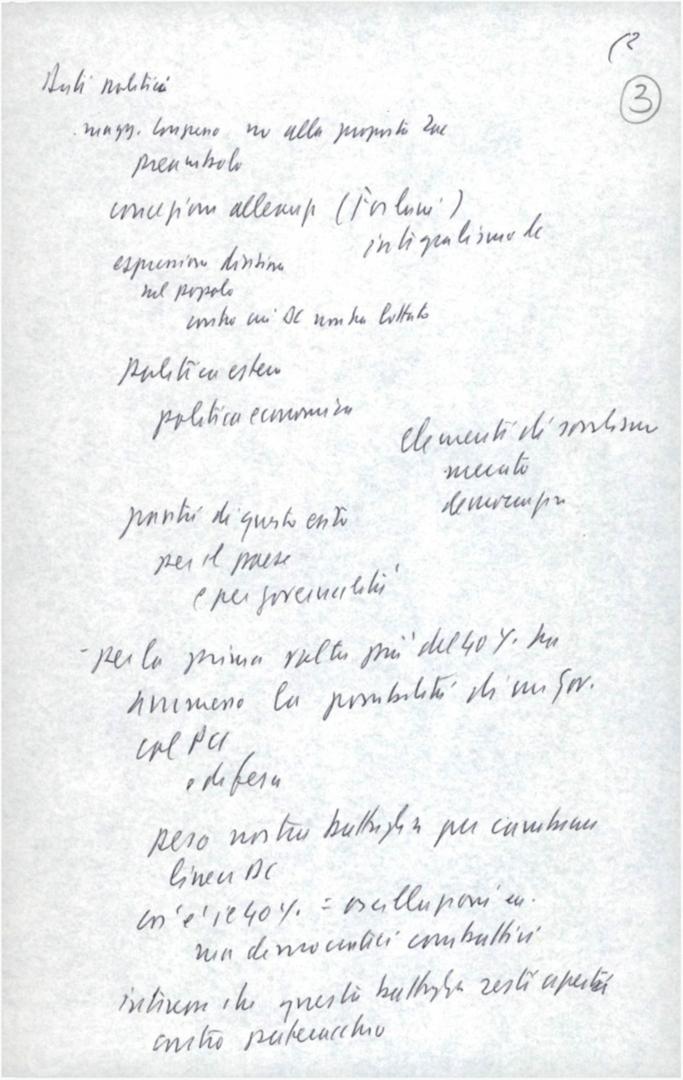 3
politici
magg. Congresso no alla proposta Zac
preambolo
concezioni alleanze (Forlani)
integralismo dc
espressione
nel popolo
contro cui DC non ha lottato
Politica estera
politica economica
elementi di socialismo
mercato
democrazia
partiti di questo esito
per il paese
e per governabilità
- per la prima volta più del 40%. ha
ammesso la possibilità di un gov.
col PCI
difesa
peso nostra battaglia per cambiare
linea DC
cos'è il 40%. = oscillazioni
ma democratici combattivi
interesse che questa battaglia resti aperta
contro pateracchio